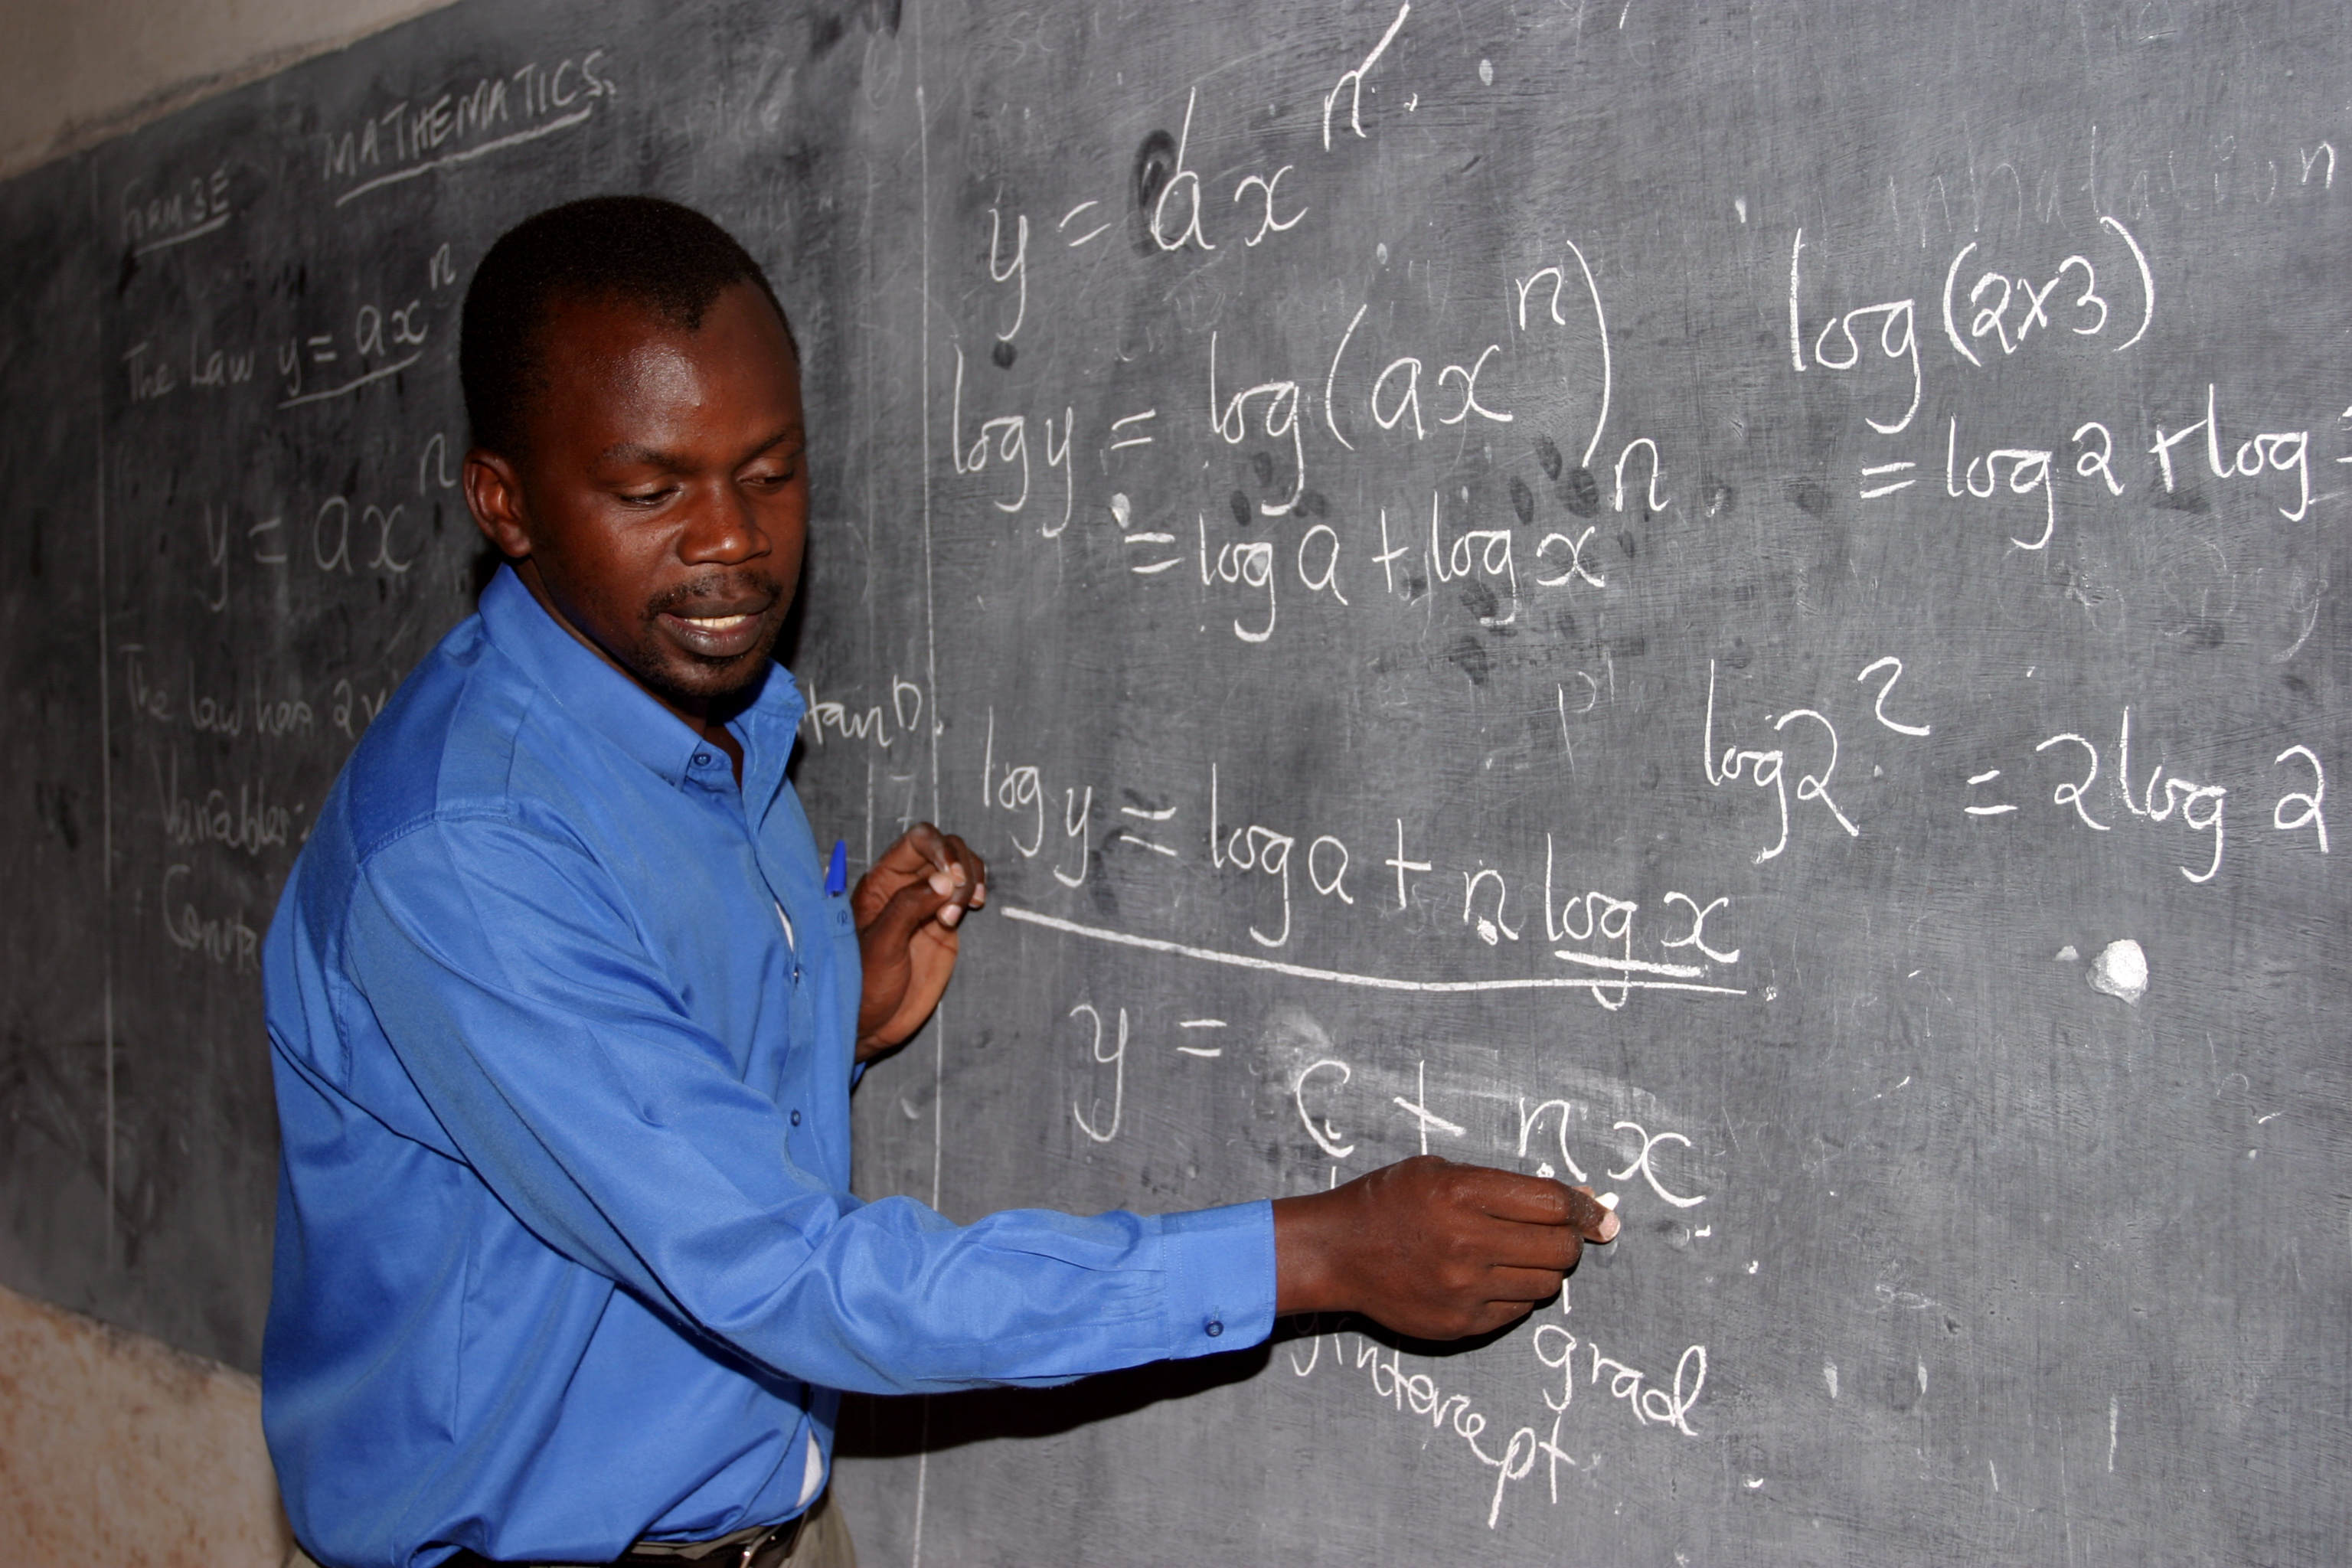 MATHEMATICS.
FORM 3E
The Law y = axⁿ
y = axⁿ
The law has 2
Variables:
y = axⁿ
log y = log(axⁿ)
= log a + log xⁿ
log y = log a + n log x
y = c + nx
y intercept
grad
log(2x3)
= log 2 + log
log 2² = 2 log 2